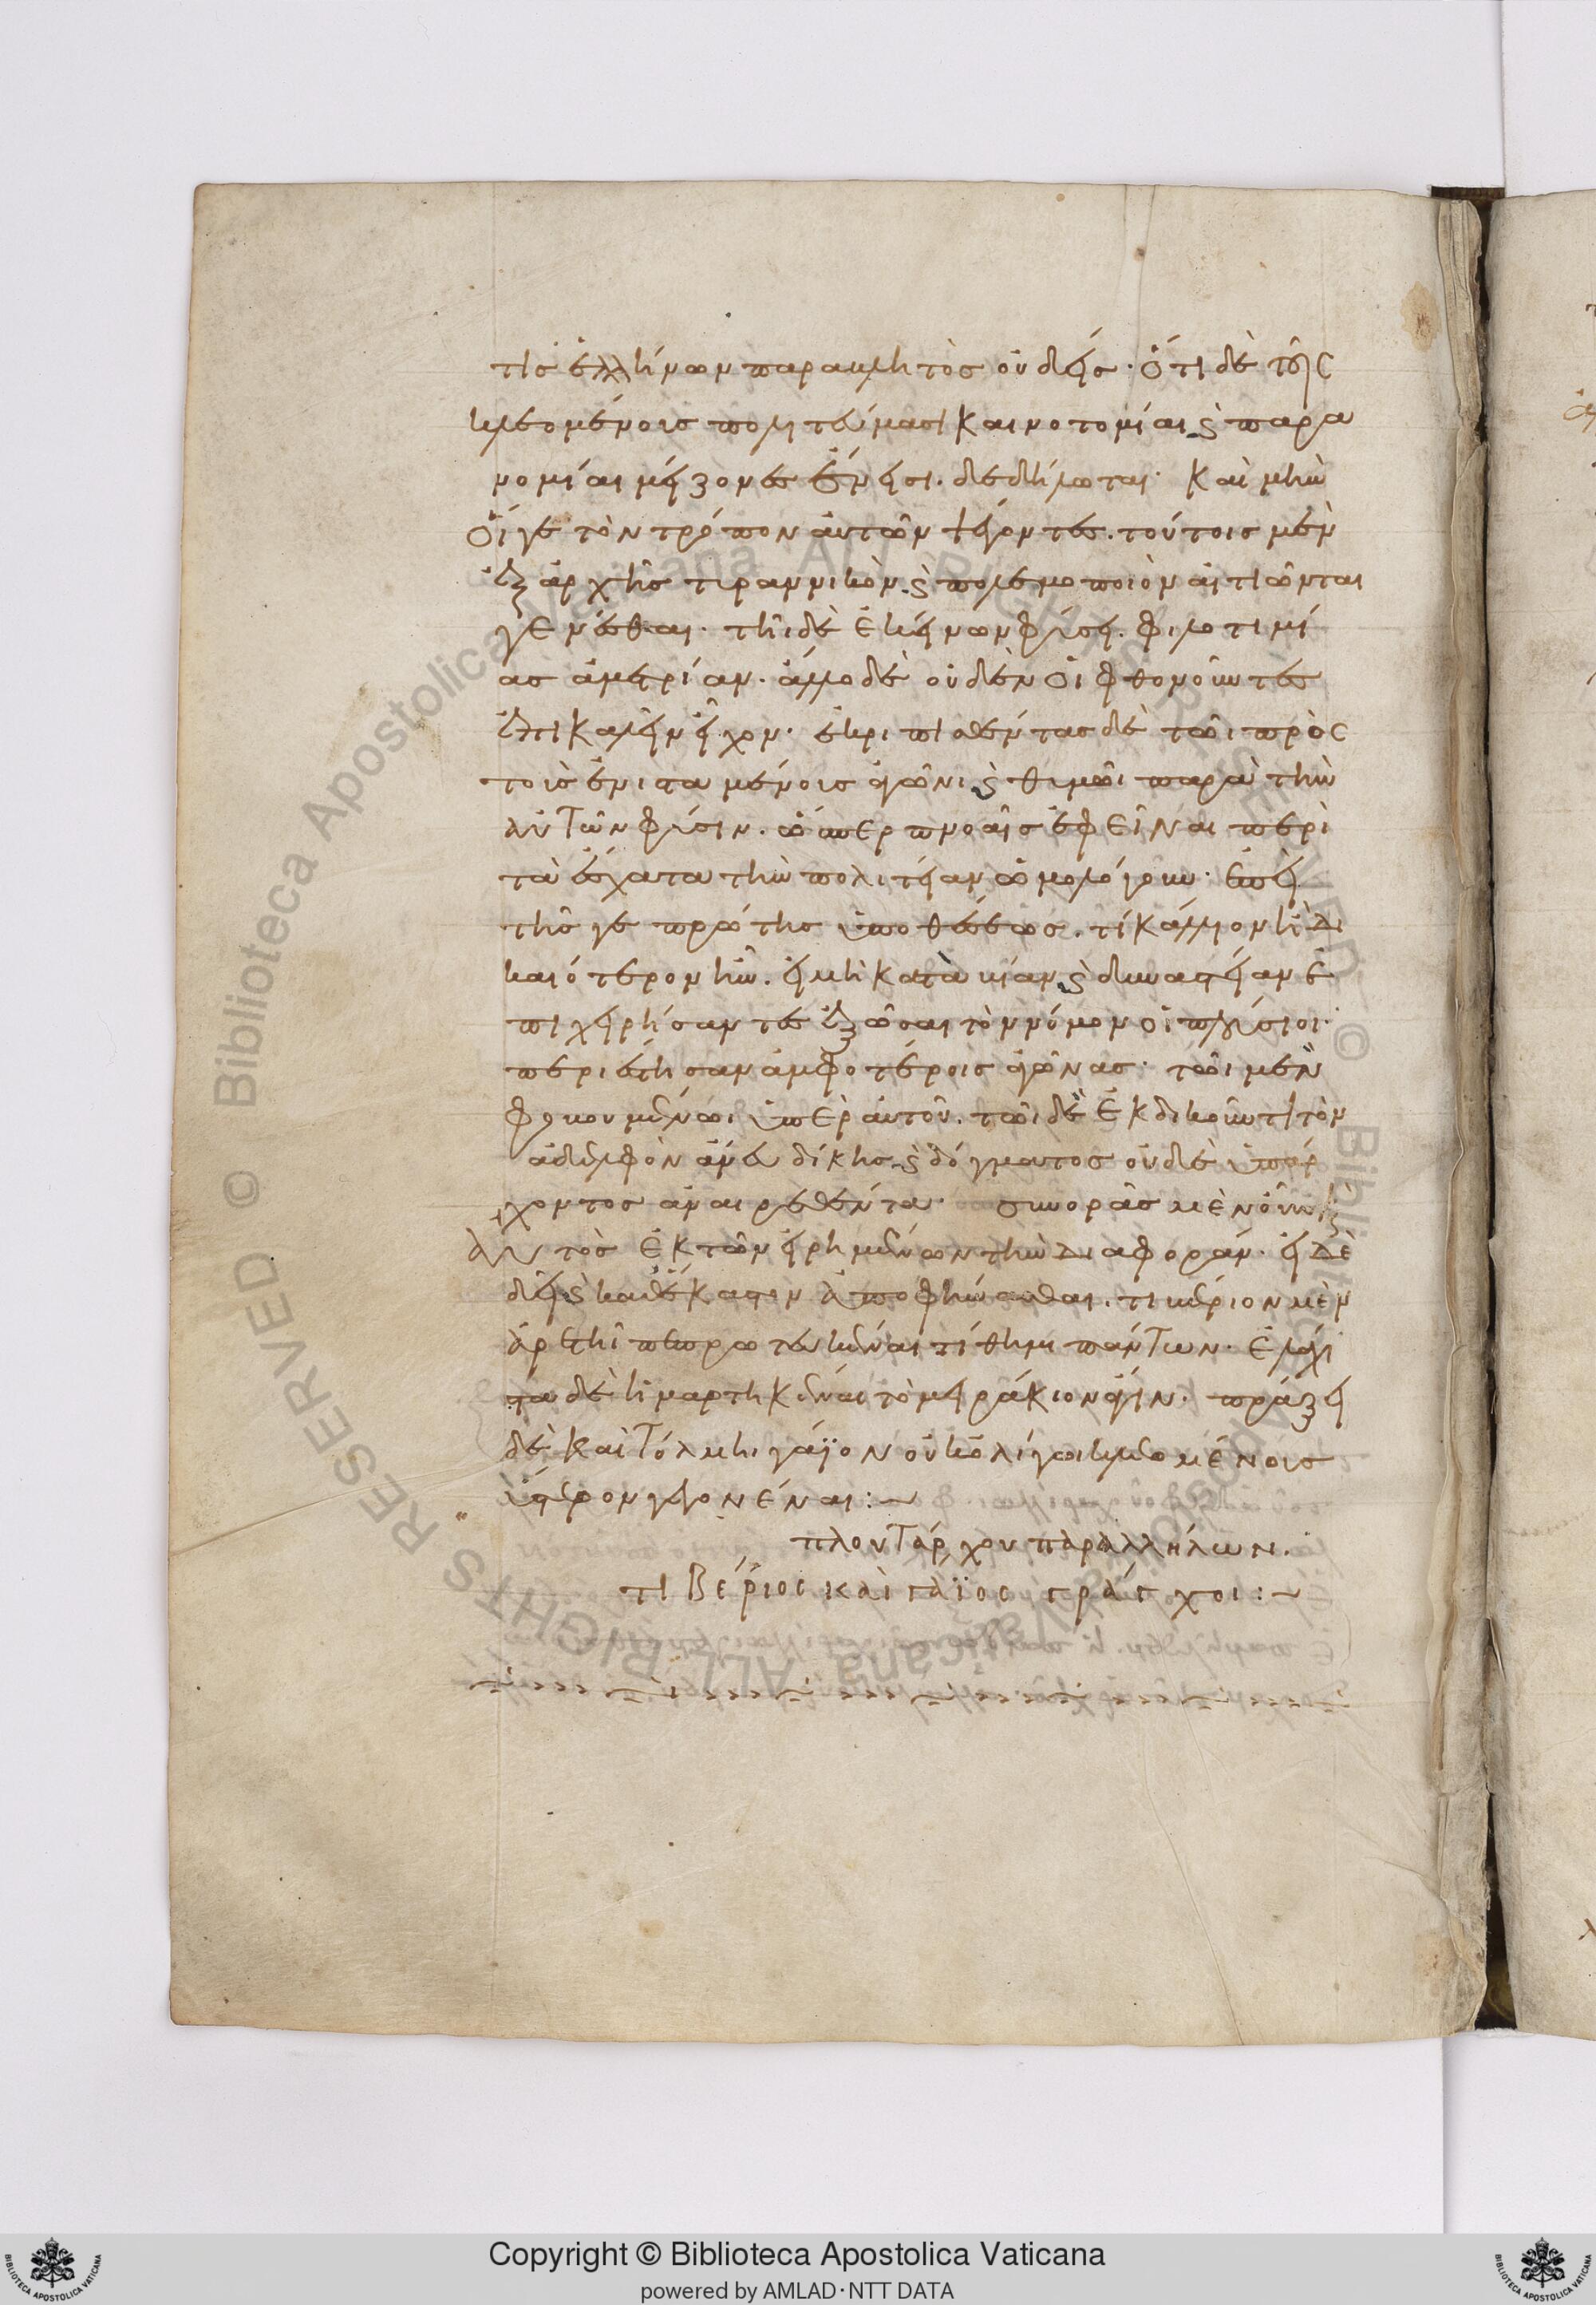 τις ἑλλήνων παρακλητὸς οὐδείς· ὅτι δὲ τοῖς
κλεομένοις πολιτεύμασι καινοτομίαι καὶ παρα
νομίαι μείζονες ἔνεισι. δεδήλωται· καὶ μὴν
οἵ γε τὸν τρόπον αὐτῶν ψέγοντες. τούτοις μὲν
ἐξ ἀρχῆς τυραννικὸν καὶ πολεμοποιὸν αἰτιῶνται
γενέσθαι· τῆι δὲ ἐκείνων φύσει. φιλοτιμί
ας ἀμετρίαν· ἄλλο δὲ οὐδὲν οἱ φθονοῦντες
ἐπικαλεῖν εἶχον· ἐκριπισθέντας δὲ τῶι πρὸς
τοὺς ἐνισταμένοις ἀγῶνι καὶ θυμῶι παρὰ τὴν
αὐτῶν φύσιν. ὥσπερ πνοαῖς ἐφεῖναι περὶ
τὰ ἔσχατα τὴν πολιτείαν ὡμολόγουν· ἐπεὶ
τῆς γε πρώτης ὑποθέσεως. τί κάλλιον ἢ δι
καιότερον ἦν. εἰ μὴ κατὰ βίαν καὶ δυναστείαν ἐ
πιχειρήσαντες ἐξῶσαι τὸν νόμον οἱ πλούσιοι·
περιέστησαν ἀμφοτέροις ἀγῶνας· τῶι μὲν
φοβουμένωι ὑπὲρ αὑτοῦ. τῶι δὲ ἐκδικοῦντι τὸν
ἀδελφὸν ἄνευ δίκης καὶ δόγματος οὐδὲ ὑπάρ
χοντος ἀναιρεθέντα· συνορᾶς μὲν οὖν καὶ
αὐτὸς ἐκ τῶν εἰρημένων τὴν διαφοράν· εἰ δὲ
δεῖ καὶ καθ' ἕκαστον ἀποφήνασθαι. τιβέριον μὲν
ἀρετῆι πεπρωτευκέναι τίθημι πάντων· ἐλάχι
στα δὲ ἡμαρτηκέναι τὸ μειράκιον ἆγιν· πράξει
δὲ καὶ τόλμηι γάϊον οὐκ ὀλίγωι κλεομένους
ὕστερον γεγονέναι:~
πλουτάρχου παραλλήλων.
τιβέριος καὶ γάϊος γράγχοι:~
Copyright © Biblioteca Apostolica Vaticana
powered by AMLAD·NTT DATA